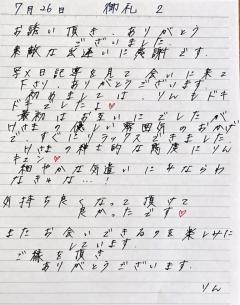 7月26日 御礼 2
お誘い頂き、ありがとう
ございました
素敵なお気遣いに感謝です。
写メ日記等を見て 会いに来て
下さり、ありがとうございます。
初めましては、りんもドキ
ドキでした♡
最初はお互いにでしたが
けさまの優しい雰囲気のおかげ
で、すぐにリラックスできました
けさまの紳士的な態度にりん
キュン♡
細やかな気遣いにみならわ
なきゃな…!
気持ち良くなって頂けて
良かったです♡
またお会いできるのを楽しみに
しています
ご縁を頂き
ありがとうございます。
りん